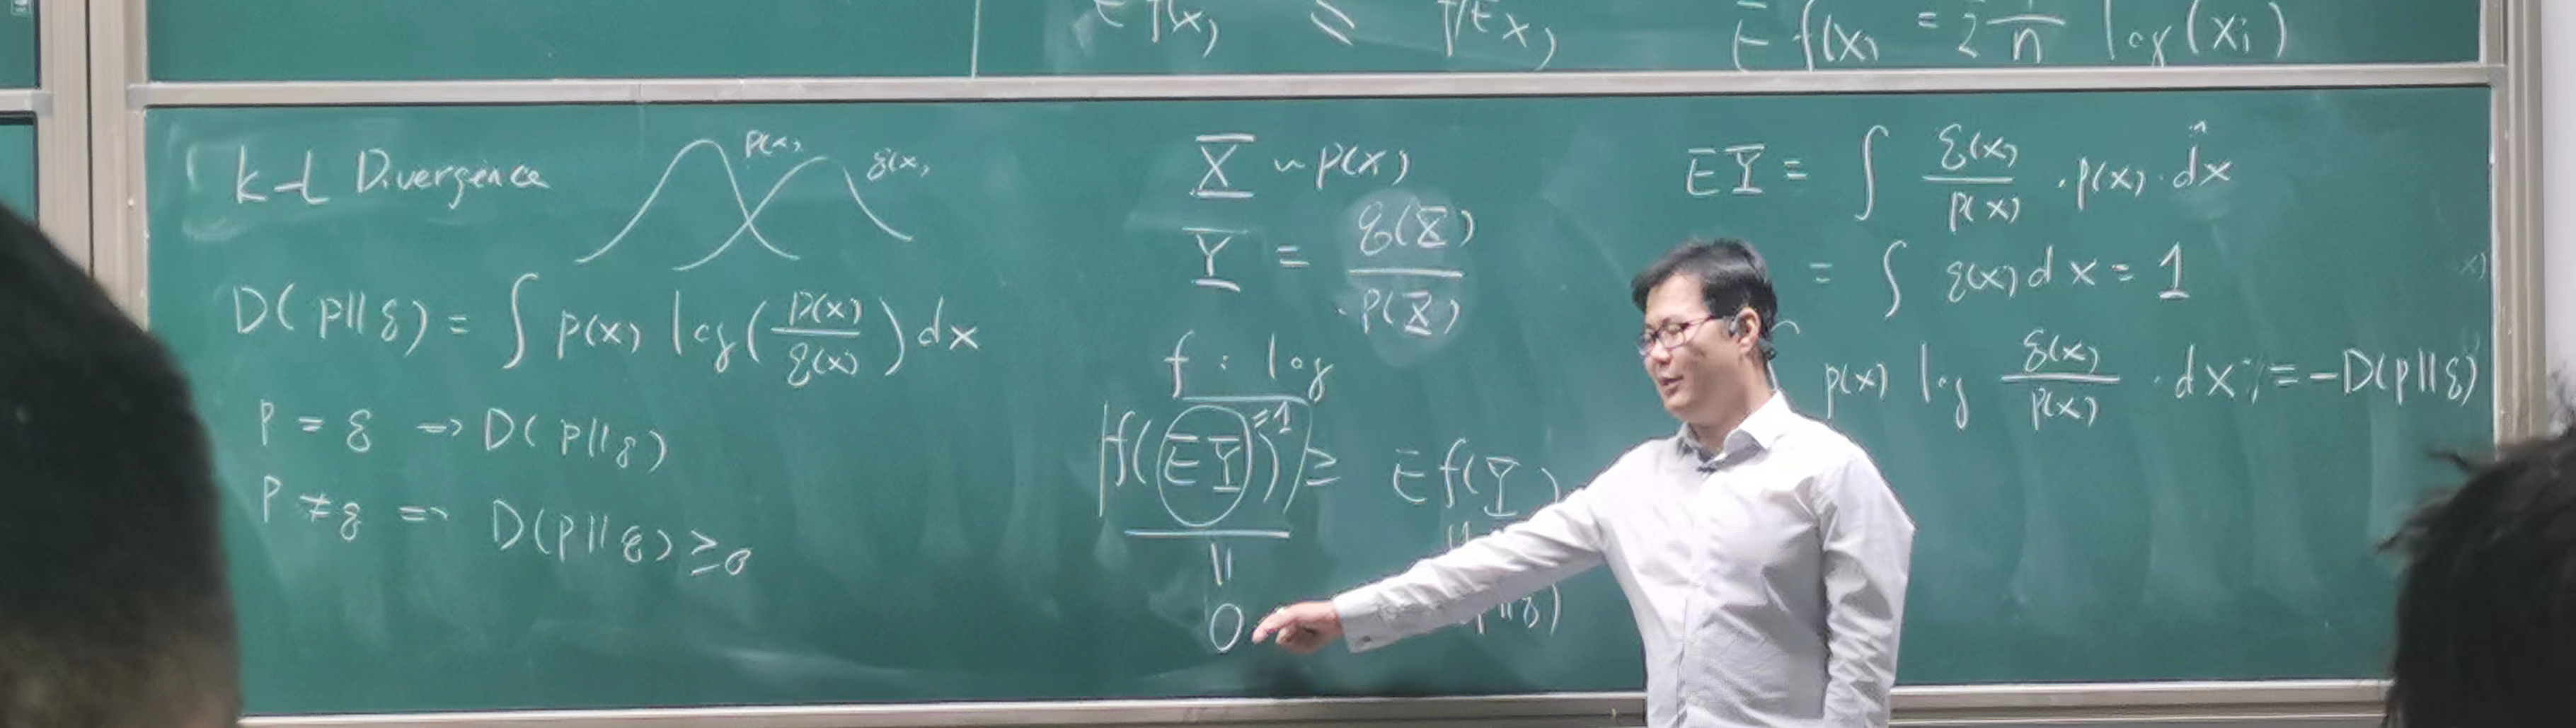 E f(x) ≤ f(Ex)
E f(x) = Σ 1/n log(xi)
K-L Divergence
p(x)
q(x)
D(p||q) = ∫ p(x) log(p(x)/q(x)) dx
P = q → D(p||q)
P ≠ q => D(p||q) ≥ 0
X ~ p(x)
Y = q(X)/p(X)
f : log
f(EY) ≥ E f(Y)
=1
||
0
||q)
EY = ∫ q(x)/p(x) · p(x) · dx
= ∫ q(x) dx = 1
p(x) log q(x)/p(x) · dx = -D(p||q)